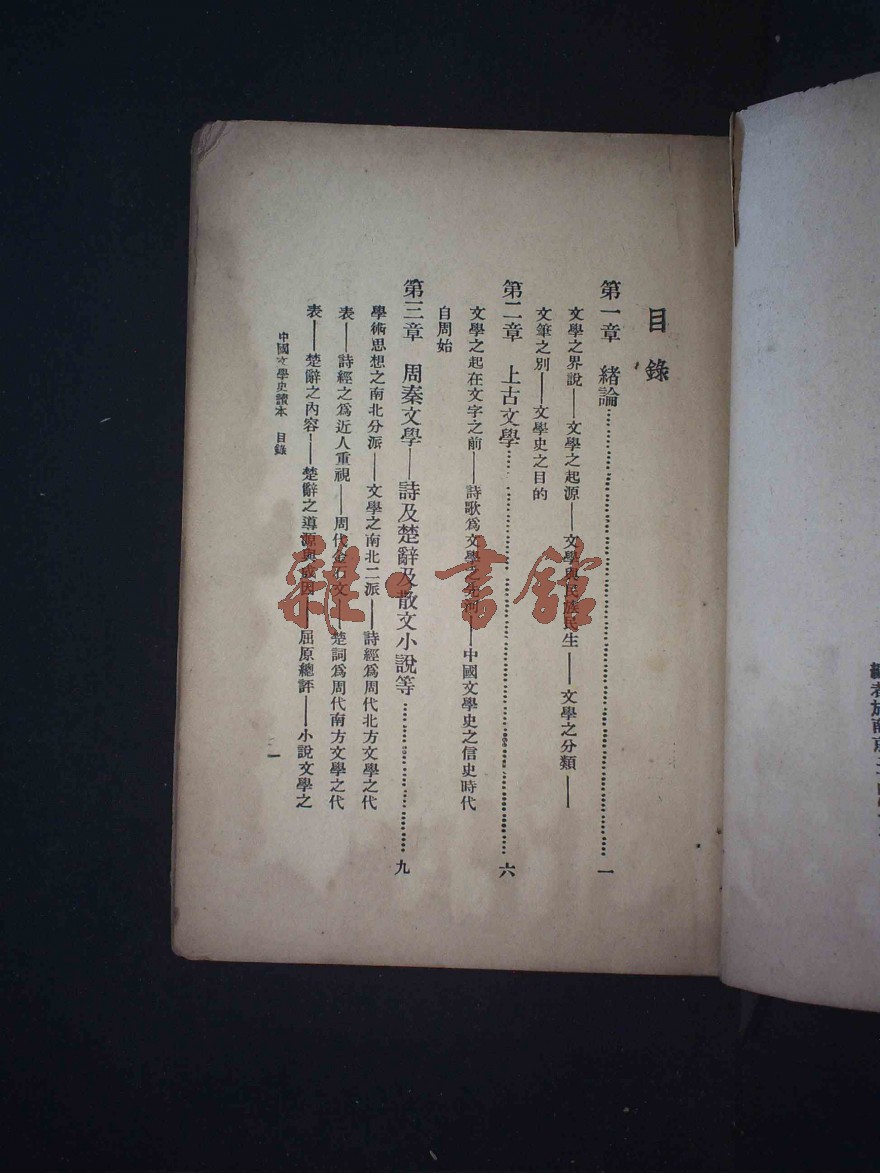 目錄
第一章　緒論……一
文學之界說——文學之起源——文學與民族民生——文學之分類——
文筆之別——文學史之目的
第二章　上古文學……六
文學之起在文字之前——詩歌爲文學之先河——中國文學史之信史時代
自周始
第三章　周秦文學——詩及楚辭及散文小說等……九
學術思想之南北分派——文學之南北二派——詩經爲周代北方文學之代
表——詩經之爲近人重視——周代金石文——楚詞爲周代南方文學之代
表——楚辭之內容——楚辭之導源與成因——屈原總評——小說文學之
中國文學史讀本　目錄
一
雜·書館